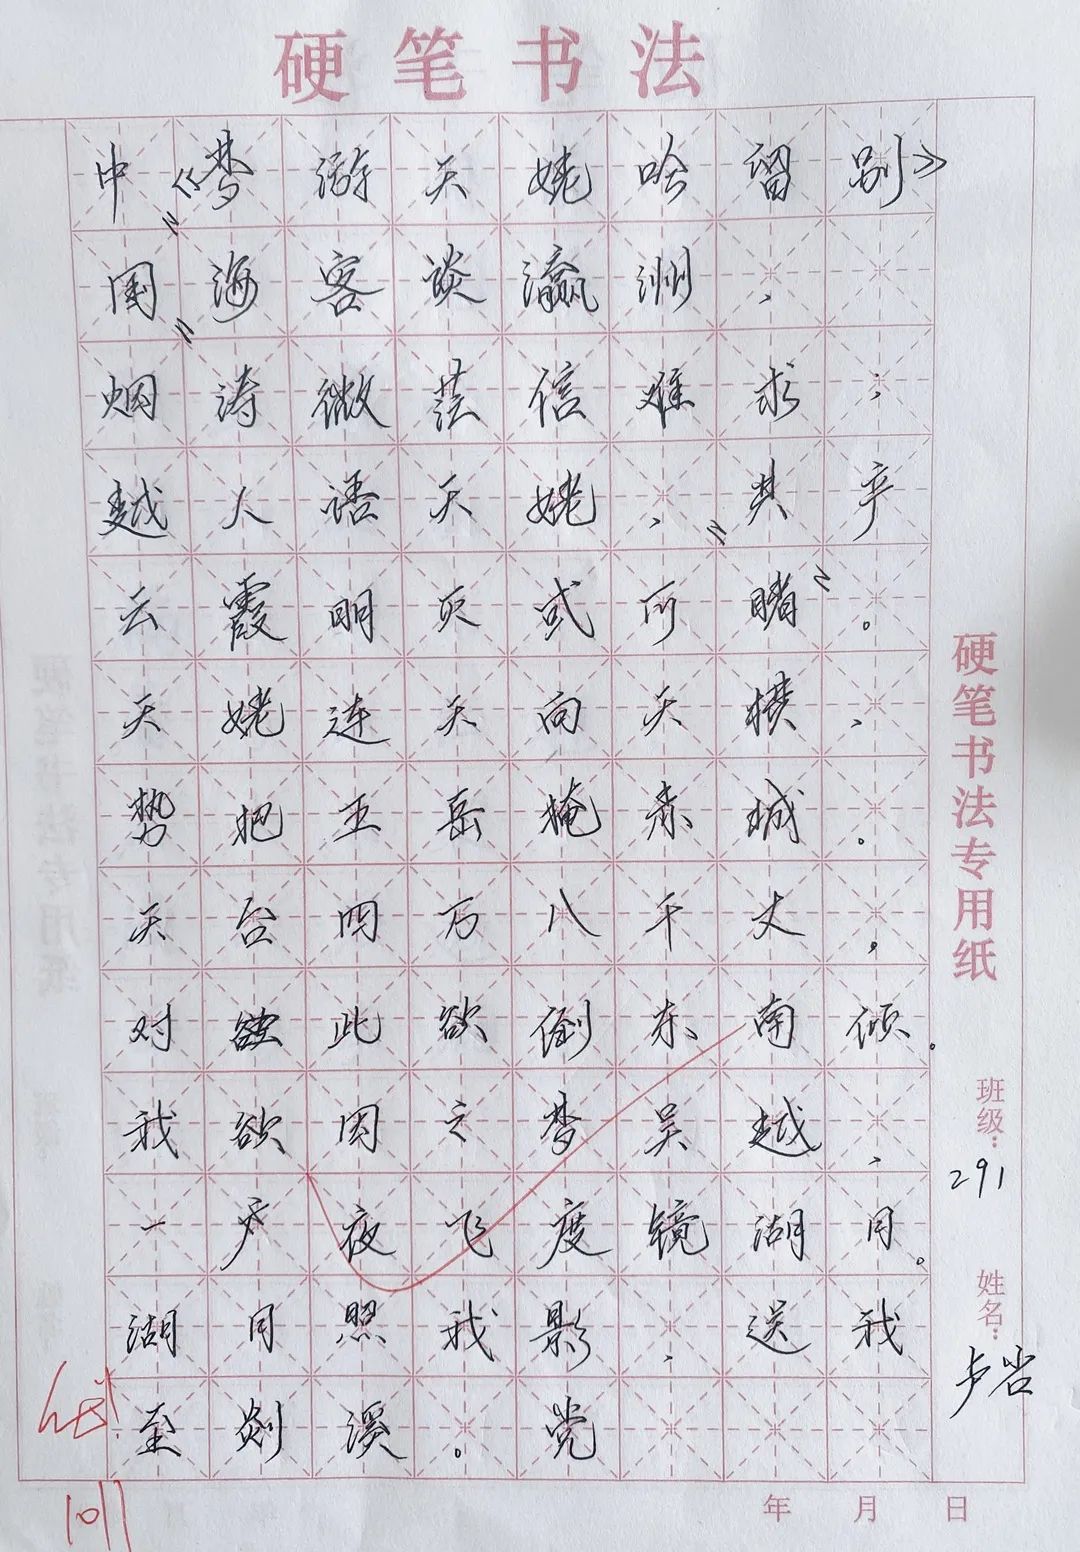 硬笔书法
中《梦游天姥吟留别》
"国"海客谈瀛洲,
烟涛微茫信难求;
越人语天姥,"共产
云霞明灭或可睹"。
天姥连天向天横,
势拔五岳掩赤城。
天台四万八千丈,
对欲此欲倒东南倾。
我欲因之梦吴越,
一夕夜飞度镜湖月。
湖月照我影,送我
至剡溪。党
硬笔书法专用纸
班级:291
姓名:
年 月 日